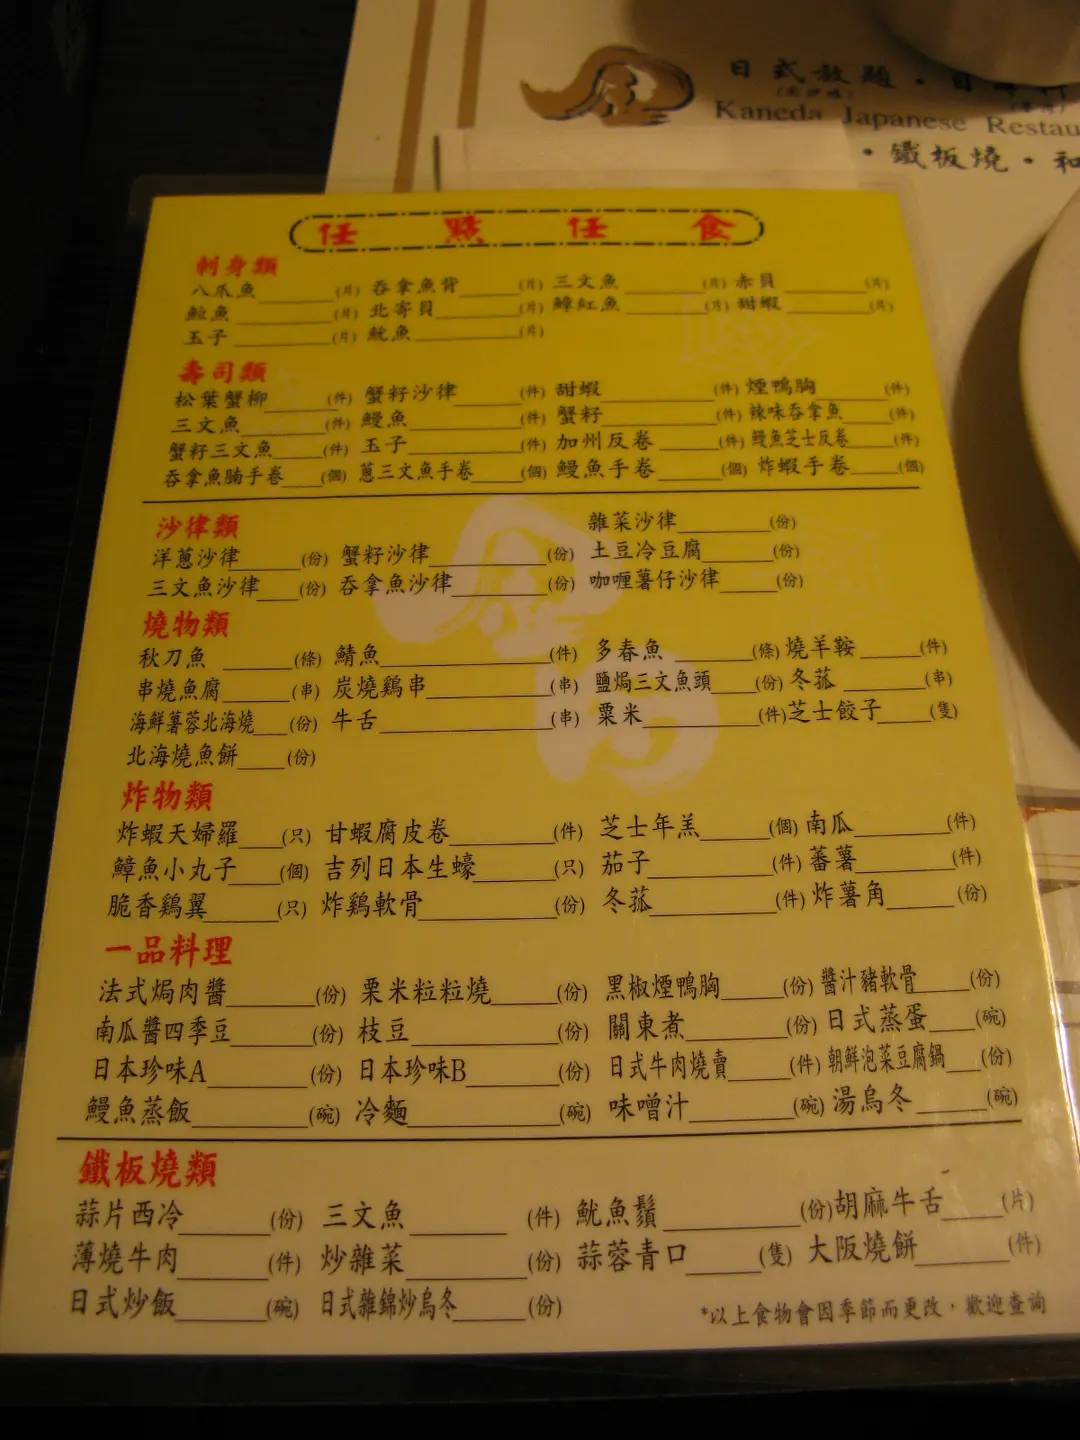 日式放題・日
Kaneda Japanese Restau
・鐵板燒・和
任 點 任 食
刺身類
八爪魚______(片) 吞拿魚背______(片) 三文魚______(片) 赤貝______(片)
鯰魚______(片) 北寄貝______(片) 鱆紅魚______(片) 甜蝦______(片)
玉子______(片) 魷魚______(片)
壽司類
松葉蟹柳______(件) 蟹籽沙律______(件) 甜蝦______(件) 煙鴨胸______(件)
三文魚______(件) 鰻魚______(件) 蟹籽______(件) 辣味吞拿魚______(件)
蟹籽三文魚______(件) 玉子______(件) 加州反卷______(件) 鰻魚芝士反卷______(件)
吞拿魚腩手卷______(個) 蔥三文魚手卷______(個) 鰻魚手卷______(個) 炸蝦手卷______(個)
沙律類
雜菜沙律______(份)
洋蔥沙律______(份) 蟹籽沙律______(份) 土豆冷豆腐______(份)
三文魚沙律______(份) 吞拿魚沙律______(份) 咖喱薯仔沙律______(份)
燒物類
秋刀魚______(條) 鯖魚______(件) 多春魚______(條) 燒羊鞍______(件)
串燒魚腐______(串) 炭燒鷄串______(串) 鹽焗三文魚頭______(份) 冬菰______(串)
海鮮薯蓉北海燒______(份) 牛舌______(串) 粟米______(件) 芝士餃子______(隻)
北海燒魚餅______(份)
炸物類
炸蝦天婦羅______(只) 甘蝦腐皮卷______(件) 芝士年羔______(個) 南瓜______(件)
鱆魚小丸子______(個) 吉列日本生蠔______(只) 茄子______(件) 蕃薯______(件)
脆香鷄翼______(只) 炸鷄軟骨______(份) 冬菰______(件) 炸薯角______(份)
一品料理
法式焗肉醬______(份) 粟米粒粒燒______(份) 黑椒煙鴨胸______(份) 醬汁豬軟骨______(份)
南瓜醬四季豆______(份) 枝豆______(份) 關東煮______(份) 日式蒸蛋______(碗)
日本珍味A______(份) 日本珍味B______(份) 日式牛肉燒賣______(件) 朝鮮泡菜豆腐鍋______(份)
鰻魚蒸飯______(碗) 冷麵______(碗) 味噌汁______(碗) 湯烏冬______(碗)
鐵板燒類
蒜片西冷______(份) 三文魚______(件) 魷魚鬚______(份) 胡麻牛舌______(片)
薄燒牛肉______(件) 炒雜菜______(份) 蒜蓉青口______(隻) 大阪燒餅______(件)
日式炒飯______(碗) 日式雜錦炒烏冬______(份)
*以上食物會因季節而更改，歡迎查詢